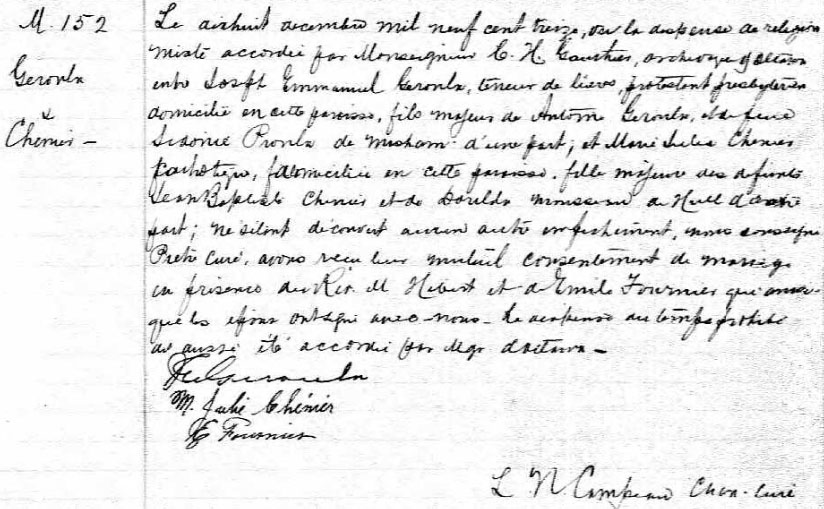 M. 152
Geronla
&
Chenier –
Le dixhuit decembre mil neuf cent treize, vu la dispense de religion
mixte accordée par Monseigneur C. H. Gauthier, archevêque d'Ottawa
entre Joseph Emmanuel Geronla, teneur de livres, protestant presbyterien
domicilié en cette paroisse, fils majeur de Antoine Geronla, et de feue
Sidonie Pronla de d'une part; et Marie Julie Chenier
catholique, domiciliée en cette paroisse, fille majeure des défunts
Jean Baptiste Chenier et de Mousseau de Hull d'autre
part; ne s'étant découvert aucun autre empêchement, nous soussigné
Prêtre Curé, avons reçu leur mutuel consentement de mariage
en présence du Rev. M Hébert et d'Emile Fournier qui ainsi
que les époux ont signé avec nous – La dispense du temps prohibé
a aussi été accordée par Mgr d'Ottawa –
M. Julie Chénier
E Fournier
L N. Campeau Chan. Curé